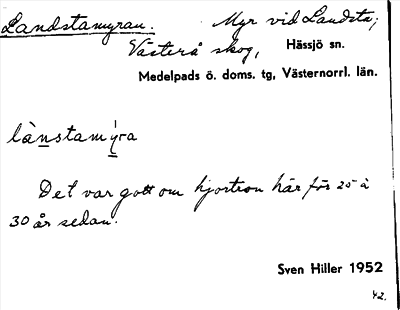 Landstamyran. Myr vid Landsta;
Västerå skog, Hässjö sn.
Medelpads ö. doms. tg, Västernorrl. län.
lànstamýra
Det var gott om hjortron här för 25 à
30 år sedan.
Sven Hiller 1952
42.